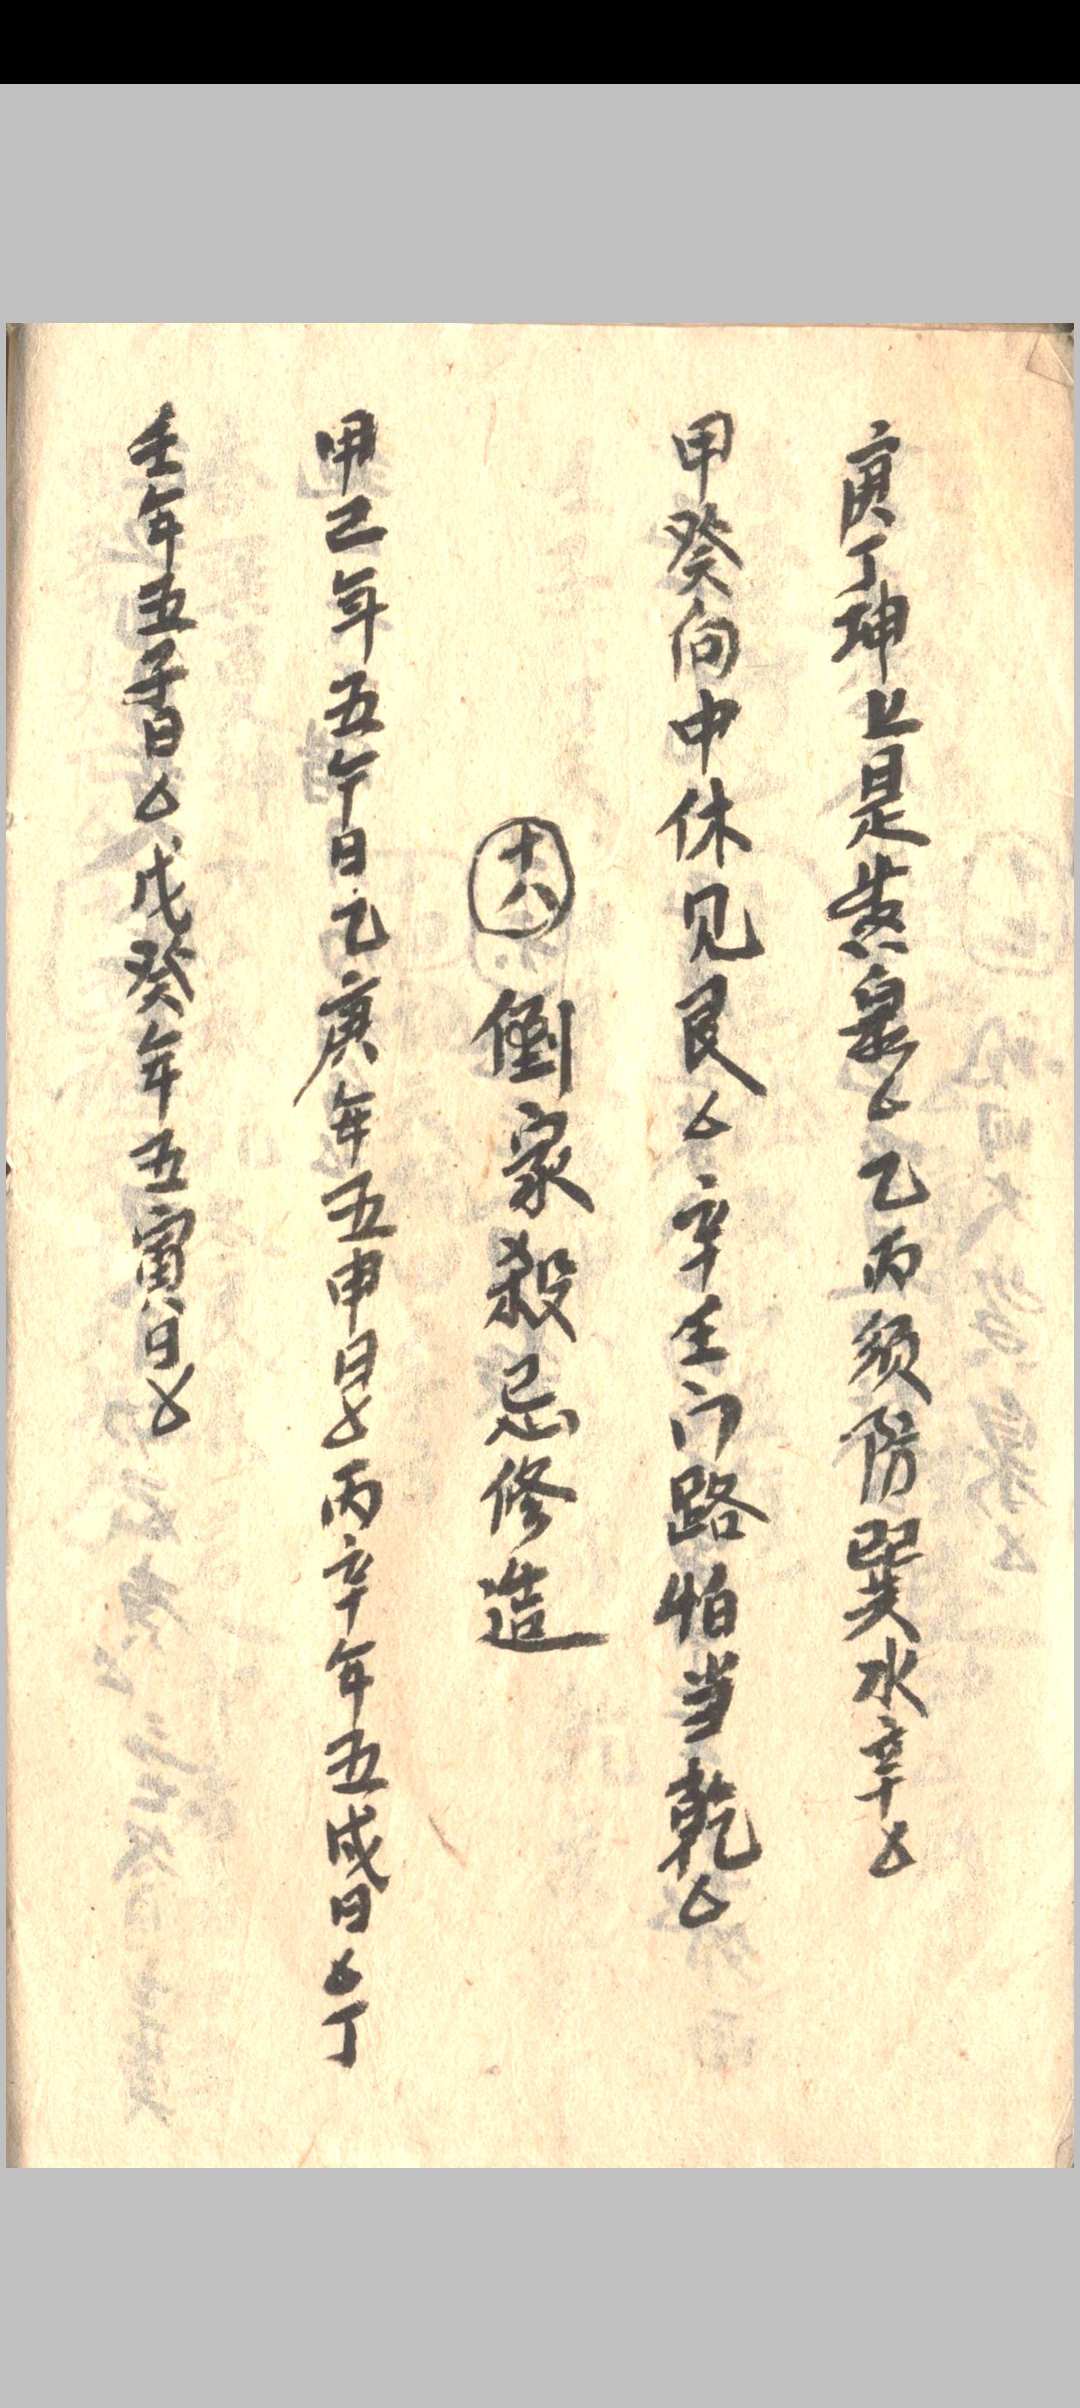 庚丁坤上是黄泉厶乙丙须防巽水辛厶
甲癸向中休见艮厶辛壬门路怕当乾厶
十八倒家殺忌修造
甲己年五午日乙庚年五申日厶丙辛年五戌日厶丁
壬年五子日厶戊癸年五寅日厶